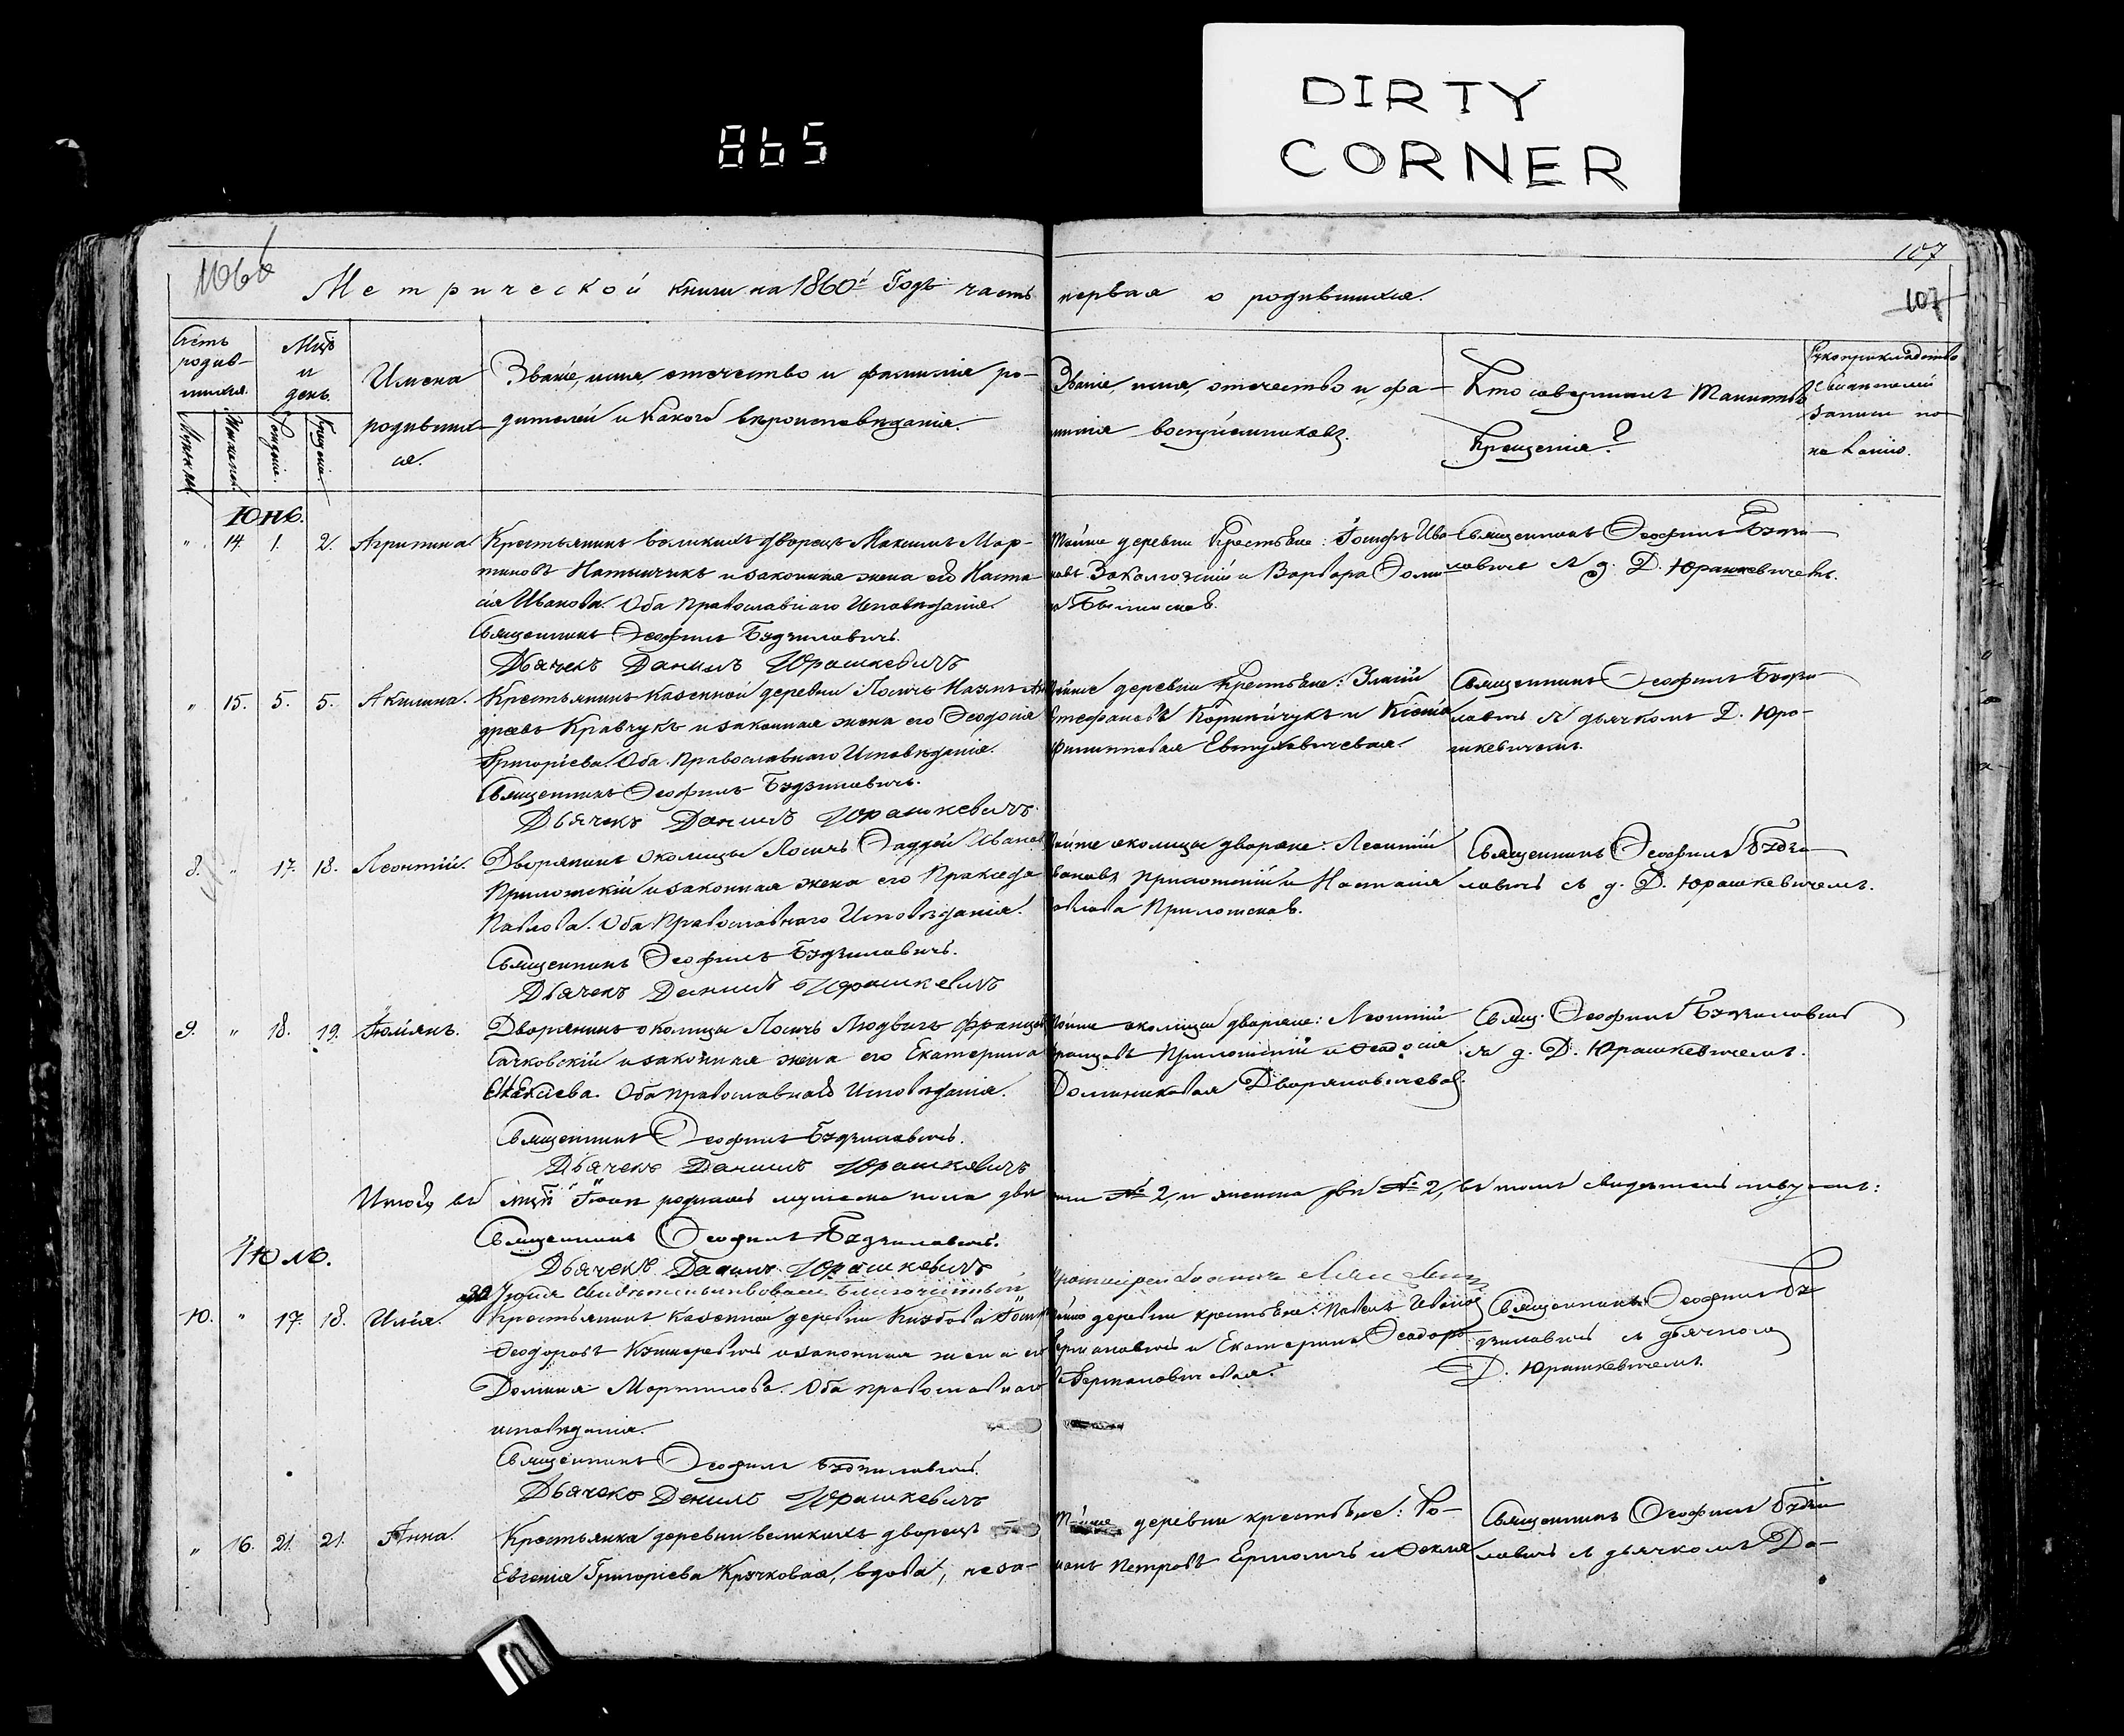 DIRTY
CORNER
865
107
106 б
107
Метрической книги на 1860й Годъ часть первая о родившихся.
Счетъ родив-шихся.
Мцъ и день.
Имена родившихся.
Званіе, имя, отечество и фамилія ро-
дителей и какого вѣроисповѣданія.
Званіе, имя, отечество и фа-
милія воспріемниковъ.
Кто совершалъ Таинство
Крещенія?
Рукоприкладство
свидѣтелей
записи по
желанію.
Мужеска.
Женска.
Рожденіе.
Крещеніе.
Юнь.
" 14. 1. 2. Агрипина Крестьянинъ великихъ дворецъ Максимъ Мар-
тиновъ Натынчикъ и законная жена его Наста-
сія Иванова. Оба Православнаго Исповѣданія.
Священникъ Ѳеофилъ Будзиловичъ.
Дьячекъ Данилъ Юрашкевичъ
Тойже деревни Крестьяне: Іосифъ Ива-
новъ и Варвара
Священникъ Ѳеофилъ Будзи-
ловичъ съ д. Д. Юрашкевичемъ.
" 15. 5. 5. Акилина. Крестьянинъ казенной деревни Лосичъ Наумъ Ан-
дреевъ Кравчукъ и законная жена его Ѳеодосія
Григоріева. Оба Православнаго Исповѣданія.
Священникъ Ѳеофилъ Будзиловичъ.
Дьячекъ Данилъ Юрашкевичъ.
тойже деревни Крестьяне:
Стефановъ Корнейчукъ и Ксенія
Филиповая Евтуховичевая.
Священникъ Ѳеофилъ Будзи-
ловичъ съ дьячкомъ Д. Юра-
шкевичемъ.
8. " 17. 18. Леонтій. Дворянинъ околицы Лосичъ Ѳаддей Ивановъ
Прилотскій и законная жена его Пракседа
Павлова. Оба Православнаго Исповѣданія.
Священникъ Ѳеофилъ Будзиловичъ.
Дьячекъ Данилъ Юрашкевичъ
тойже околицы дворяне: Леонтій
Ивановъ Прилотскій и Настасія
Павлова Прилотская.
Священникъ Ѳеофилъ Будзи-
ловичъ съ д. Д. Юрашкевичемъ.
9. " 18. 19. Іюліянъ. Дворянинъ околицы Лосичъ Людвигъ Францовъ
Сачковскій и законная жена его Екатерина
Оба православнаго Исповѣданія.
Священникъ Ѳеофилъ Будзиловичъ.
Дьячекъ Данилъ Юрашкевичъ
тойже околицы дворяне: Леонтій
Францовъ Прилотскій и Ѳеодосія
Доминиковая Дворяновичевая.
Свящ. Ѳеофилъ Будзиловичъ
съ д. Д. Юрашкевичемъ.
Итого въ мцѣ Іюнѣ родилось мужеска пола два № 2, и женска два № 2, въ томъ свидѣтельствуемъ:
Священникъ Ѳеофилъ Будзиловичъ.
Дьячекъ Данилъ Юрашкевичъ
Іюль.
свидѣтельствовалъ Благочинный Протоіерей
10. " 17. 18. Илія. Крестьянинъ казенной деревни
Ѳеодоровъ и законная жена его
Домния Мартинова. Оба православнаго
исповѣданія.
Священникъ Ѳеофилъ Будзиловичъ.
Дьячекъ Данилъ Юрашкевичъ
тойже деревни крестьяне: Павелъ Ивановъ
Германовичъ и Екатерина Ѳеодоро-
ва Германовичевая.
Священникъ Ѳеофилъ Бу-
дзиловичъ съ дьячкомъ
Д. Юрашкевичемъ.
" 16. 21. 21. Анна. Крестьянка деревни великихъ дворецъ
Евгенія Григоріева Крячковая, вдова, неза-
тойже деревни крестьяне: Ро-
манъ Петровъ Ермоличъ и Ѳекла
Священникъ Ѳеофилъ Будзи-
ловичъ съ дьячкомъ Да-